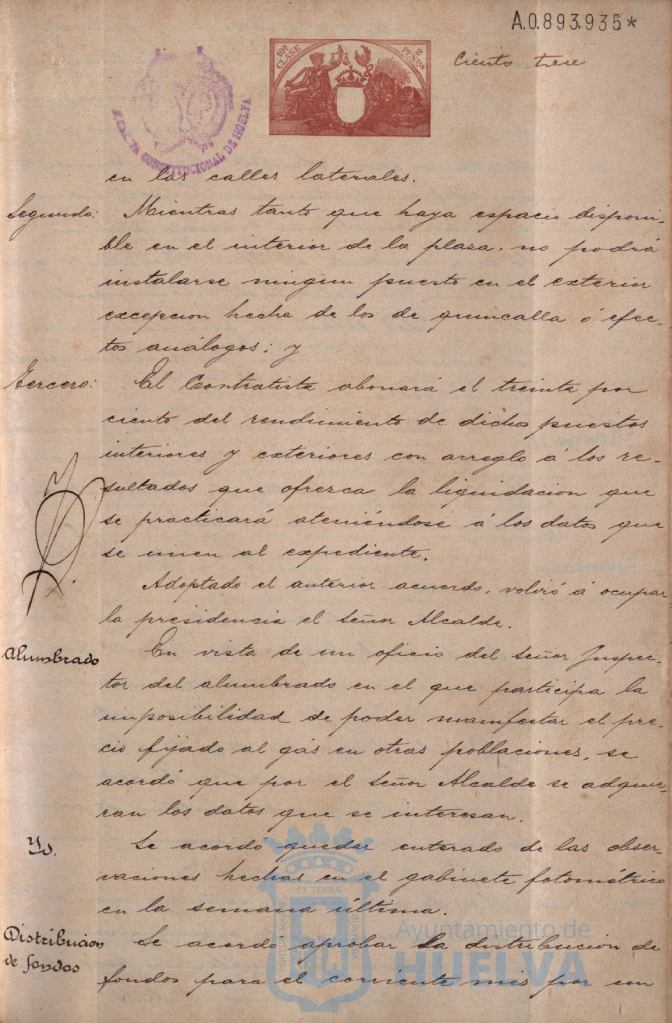 A.0.893.935*
Ciento trece
10ª CLASE 2 PESTAS
CONSTITUCIONAL DE HUELVA
en las calles laterales.
Segundo: Mientras tanto que haya espacio disponi-
ble en el interior de la plaza, no podrá
instalarse ningun puesto en el exterior
excepcion hecha de los de quincalla ó efec-
tos análogos; y
Tercero: El Contratista abonará el treinta por
ciento del rendimiento de dichos puestos
interiores y exteriores con arreglo á los re-
sultados que ofrezca la liquidacion que
se practicará ateniéndose á los datos que
se unen al expediente.
Adoptado el anterior acuerdo, volvió á ocupar
la presidencia el Señor Alcalde.
Alumbrado En vista de un oficio del Señor Inspec-
tor del alumbrado en el que participa la
imposibilidad de poder manifestar el pre-
cio fijado al gas en otras poblaciones, se
acordó que por el Señor Alcalde se adquie-
ran los datos que se interesan.
Yd. Se acordó quedar enterado de las obser-
vaciones hechas en el gabinete fotométrico
en la semana última.
Distribucion de fondos Se acordó aprobar la distribucion de
fondos para el corriente mes por un
Ayuntamiento de
HUELVA